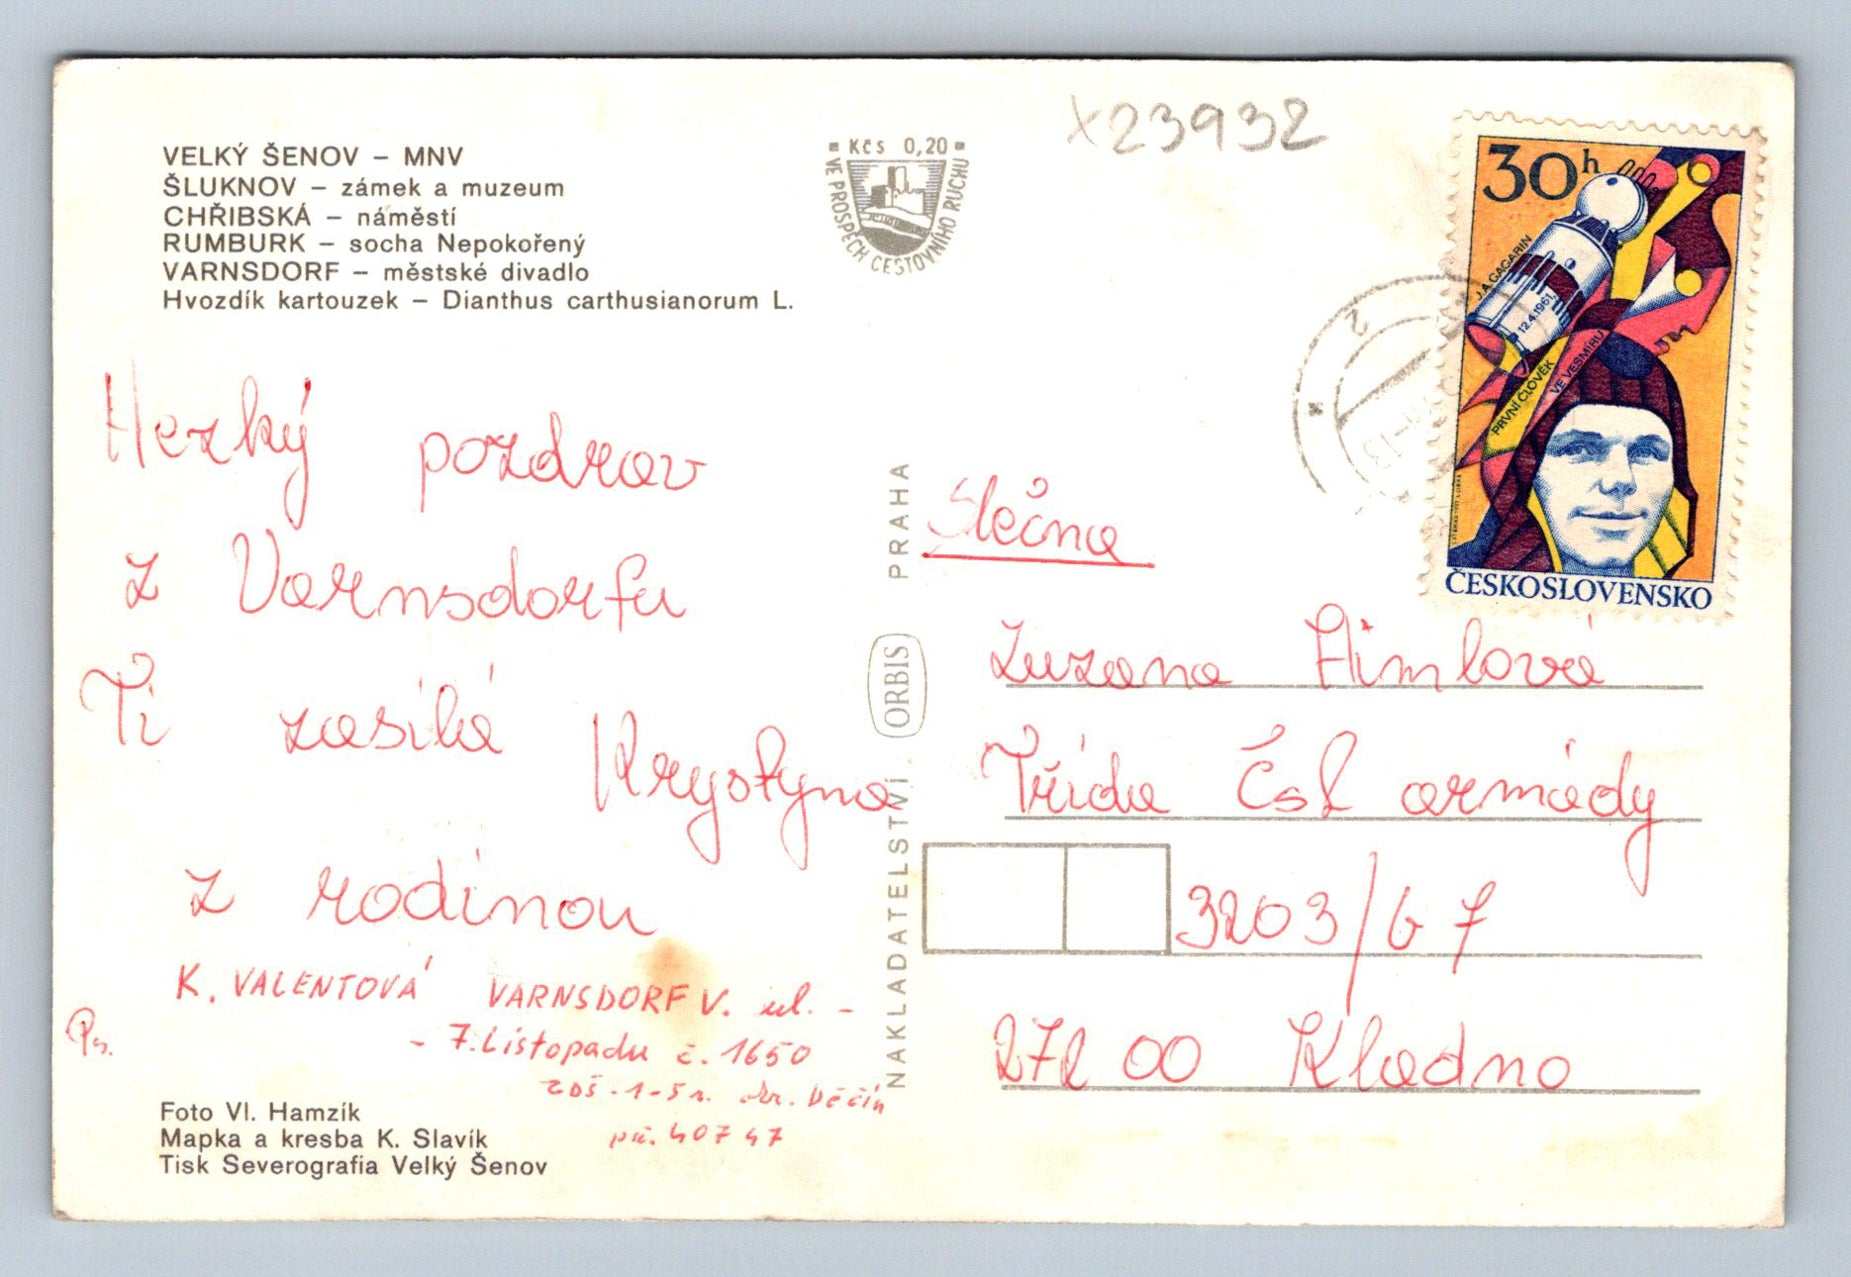 VELKÝ ŠENOV – MNV
ŠLUKNOV – zámek a muzeum
CHŘIBSKÁ – náměstí
RUMBURK – socha Nepokořený
VARNSDORF – městské divadlo
Hvozdík kartouzek – Dianthus carthusianorum L.
Kčs 0,20
VE PROSPĚCH CESTOVNÍHO RUCHU
X23932
30h
J.A.GAGARIN
12.4.1961
PRVNÍ ČLOVĚK
VE VESMÍRU
ČESKOSLOVENSKO
Hezký pozdrav
z Varnsdorfu
Ti zasílá Krystyna
z rodinou
K. VALENTOVÁ VARNSDORF V. ul. -
- 7. Listopadu č. 1650
ZDŠ - 1-5 r. okr. Děčín
psč. 407 47
Ps.
Foto Vl. Hamzík
Mapka a kresba K. Slavík
Tisk Severografia Velký Šenov
NAKLADATELSTVÍ ORBIS PRAHA
Slečna
Zuzana Aimlová
Třída Čsl armády
3203/67
272 00 Kladno